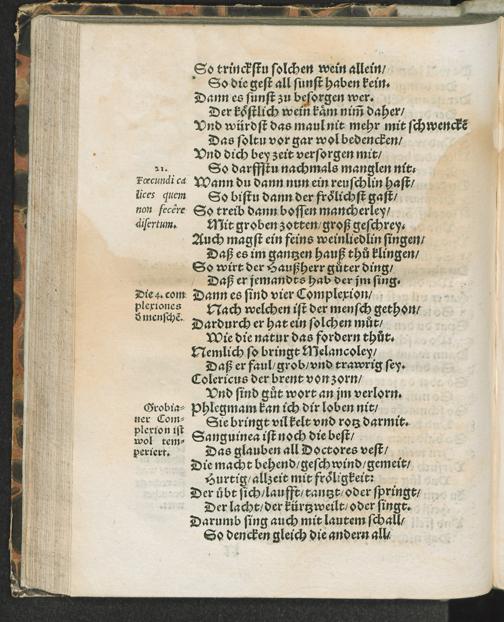 So trinckstu solchen wein allein/
So die gest all sunst haben kein.
Dann es sunst zu besorgen wer.
Der köstlich wein kåm nim̃ daher/
Vnd würdst das maul nit mehr mit schwenckẽ
Das soltu vor gar wol bedencken/
Vnd dich bey zeit versorgen mit/
So darffstu nachmals manglen nit.
21.
Fœcundi ca
lices quem
non fecêre
disertum.
Wann du dann nun ein reuschlin hast/
So bistu dann der frölichst gast/
So treib dann bossen mancherley/
Mit groben zotten/ groß geschrey.
Auch magst ein feins weinliedlin singen/
Daß es im gantzen hauß thů klingen/
So wirt der Haußherr gůter ding/
Daß er jemandts hab der jm sing.
Die 4. com
plexiones
d menschẽ.
Dann es sind vier Complexion/
Nach welchen ist der mensch gethon/
Dardurch er hat ein solchen můt/
Wie die natur das fordern thůt.
Nemlich so bringt Melancoley/
Daß er faul/ grob/ vnd trawrig sey.
Colericus der brent von zorn/
Vnd sind gůt wort an jm verlorn.
Grobia-
ner Com-
plexion ist
wol tem-
periert.
Phlegmam kan ich dir loben nit/
Sie bringt vil kelt vnd rotz darmit.
Sanguinea ist noch die best/
Das glauben all Doctores vest/
Die macht behend/ geschwind/ gemeit/
Hurtig/ allzeit mit fröligkeit:
Der übt sich/ laufft/ tantzt/ oder springt/
Der lacht/ der kürtzweilt/ oder singt.
Darumb sing auch mit lautem schall/
So dencken gleich die andern all/